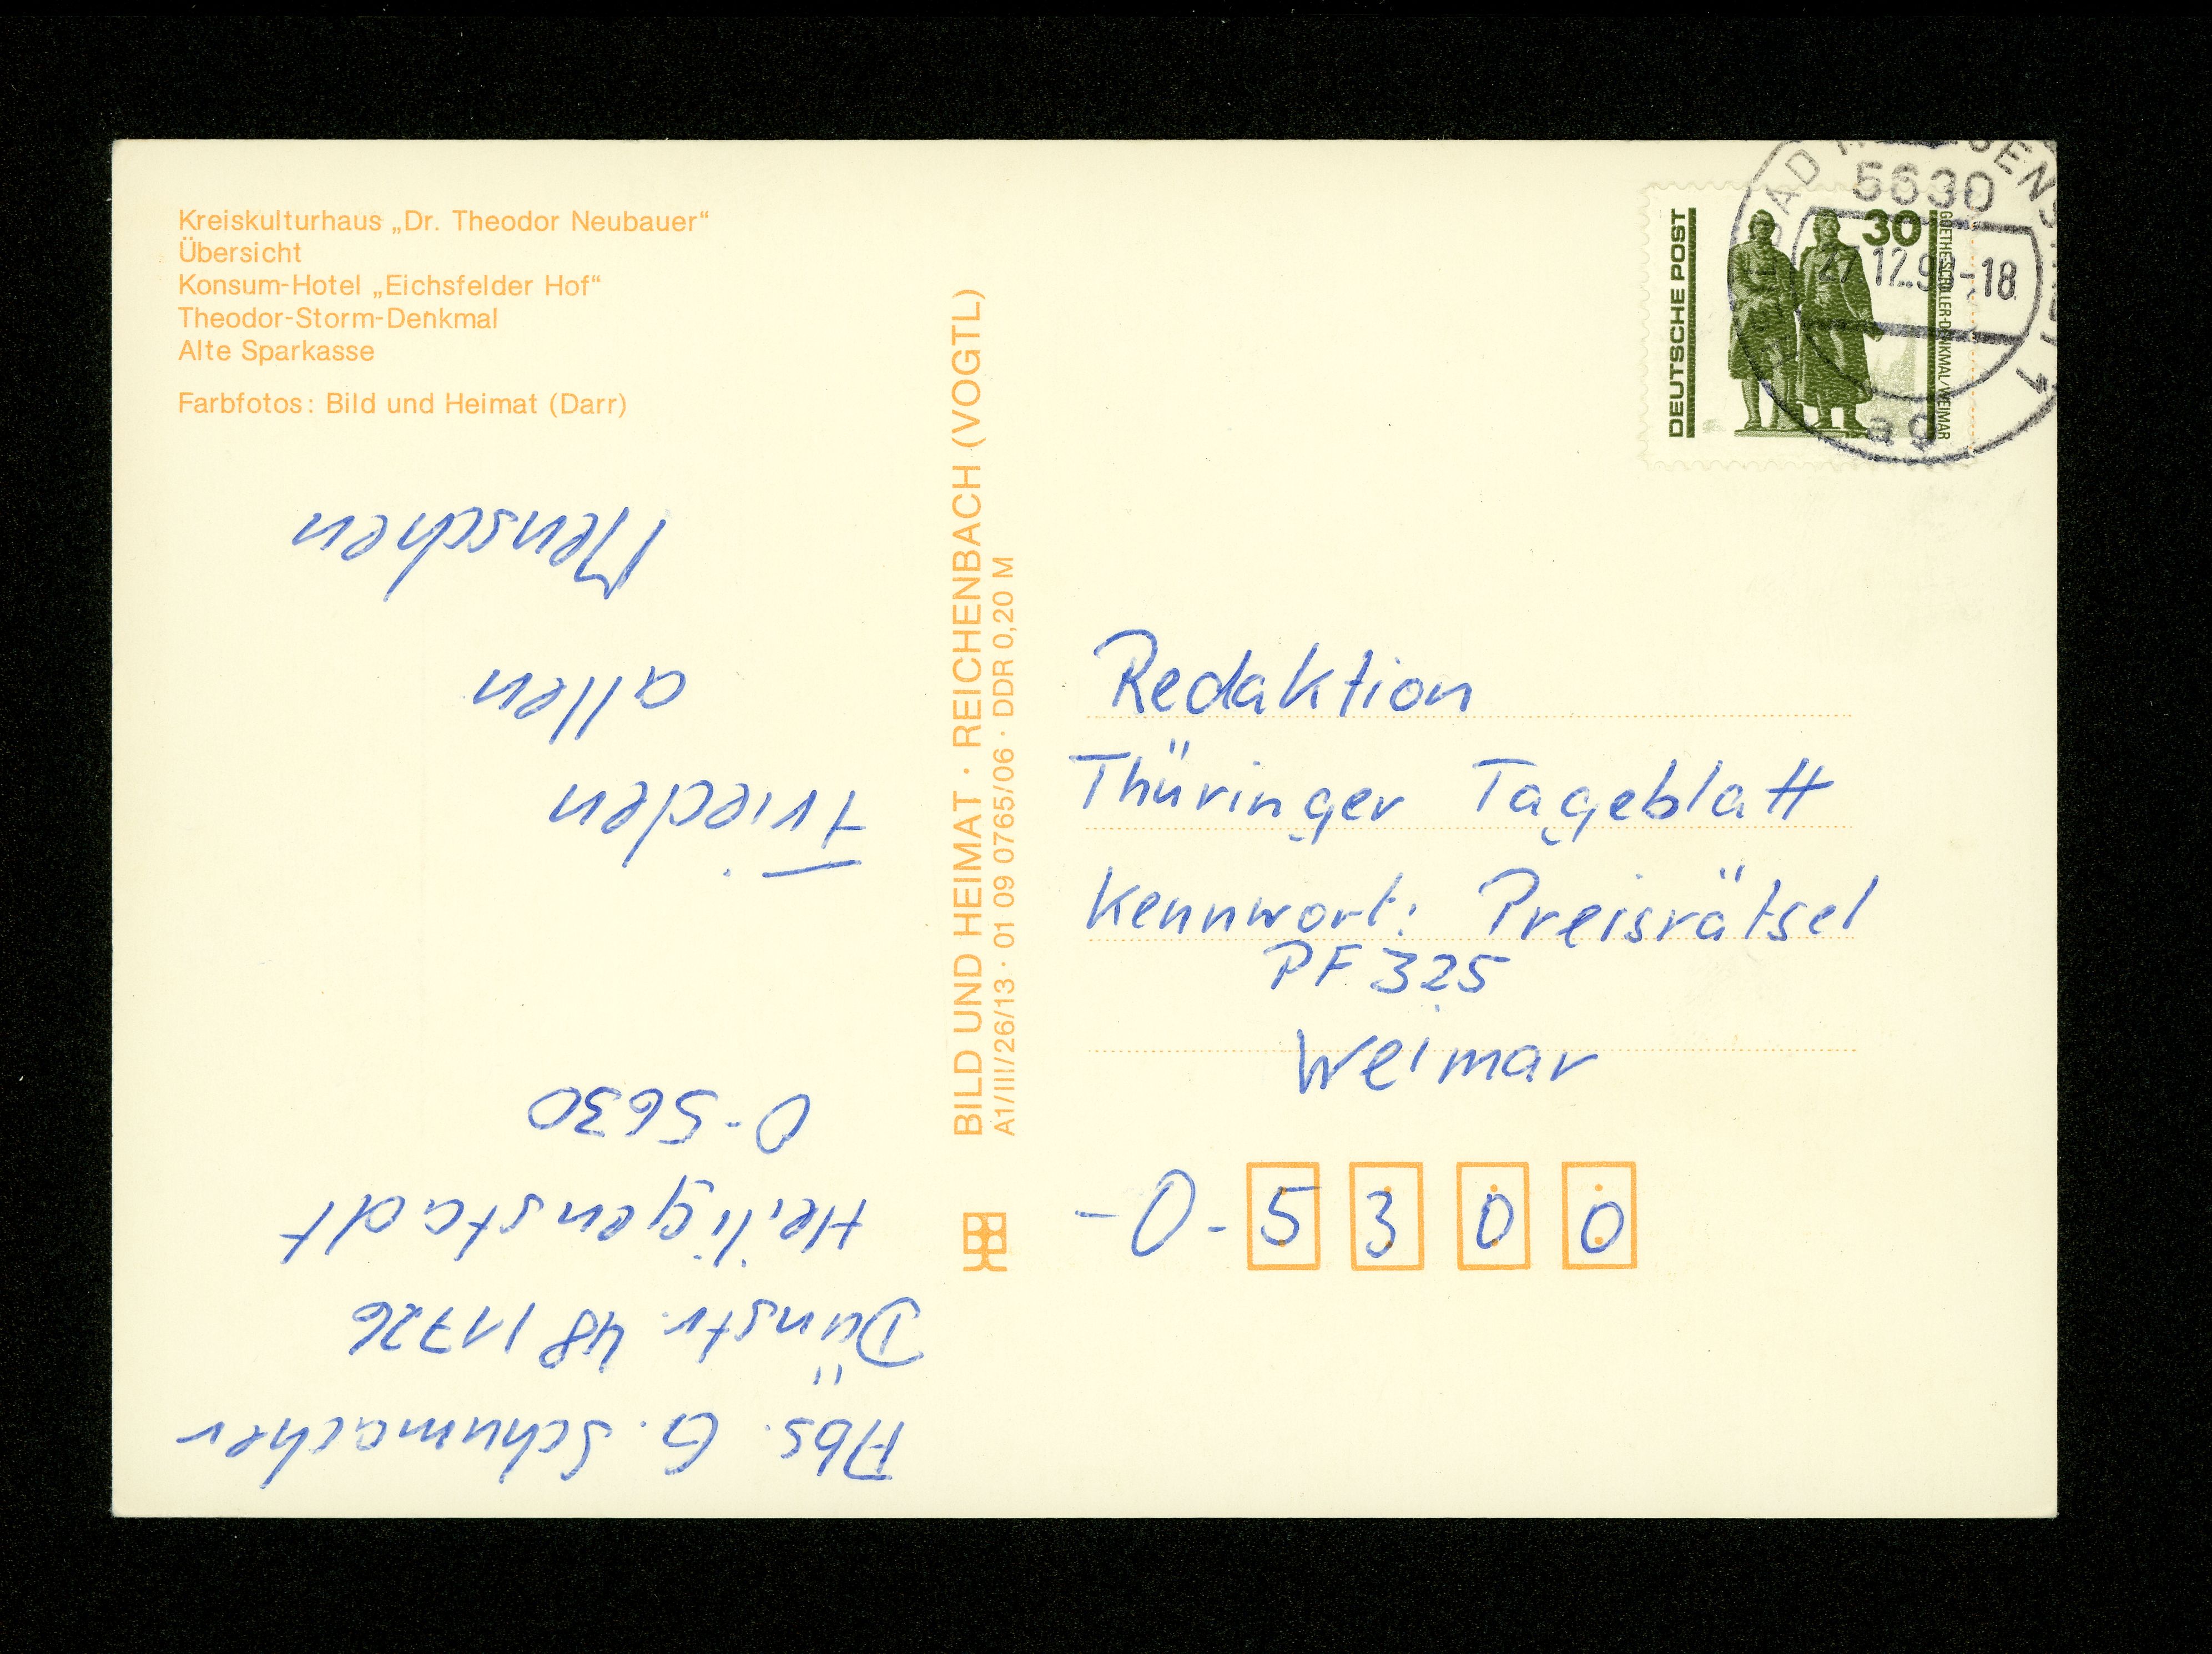 Kreiskulturhaus „Dr. Theodor Neubauer“
Übersicht
Konsum-Hotel „Eichsfelder Hof“
Theodor-Storm-Denkmal
Alte Sparkasse
Farbfotos: Bild und Heimat (Darr)
Abs. G. Schumacher
Dünstr. 48 / 1726
Heiligenstadt
O-5630
Frieden
allen
Menschen
BILD UND HEIMAT · REICHENBACH (VOGTL)
A1/III/26/13 · 01 09 0765/06 · DDR 0,20 M
DEUTSCHE POST
30
GOETHE-SCHILLER-DENKMAL/WEIMAR
5630
BAD
12.9
-18
ag
Redaktion
Thüringer Tageblatt
Kennwort: Preisrätsel
PF 325
Weimar
-O-5300